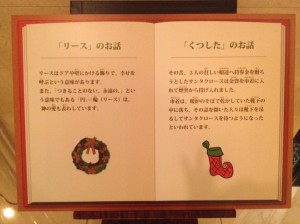 「リース」のお話
リースはドアや壁にかける飾りで、幸せを
呼ぶという意味があります。
また、「つきることのない、永遠の、」とい
う意味でもある「丸い輪（リース）は、
神の愛も表わしています。
「くつした」のお話
その昔、3人の貧しい娘達へ持参金を贈ろ
うとしたサンタクロースは金貨を布袋に入
れて煙突から投げ入れました。
偶然、暖炉のそばで乾かしていた靴下の
中に落ち、その話を聞いた人々は靴下を吊
るしてサンタクロースを待つようになった
といわれています。